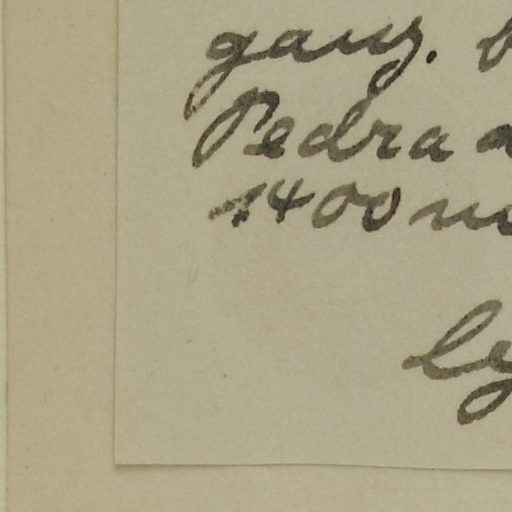 ganz.
Pedra a
1400 m